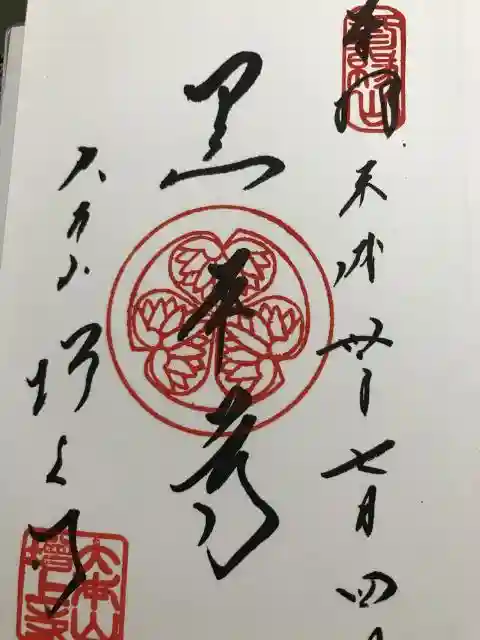 奉拝
平成卅年七月四日
黒本尊
大本山 増上寺
大本山
増上寺